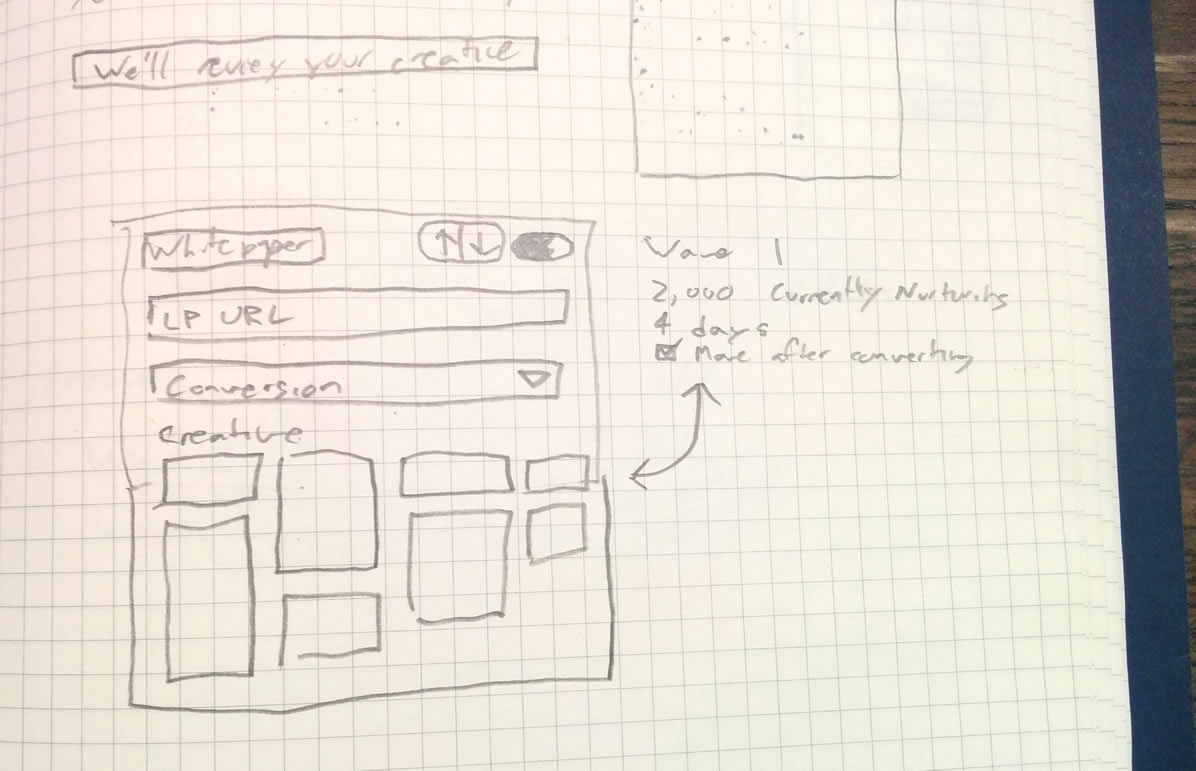 We'll review your creative
Whitepaper
LP URL
Conversion
Creative
Wave 1
2,000 Currently Nurturing
4 days
Move after converting